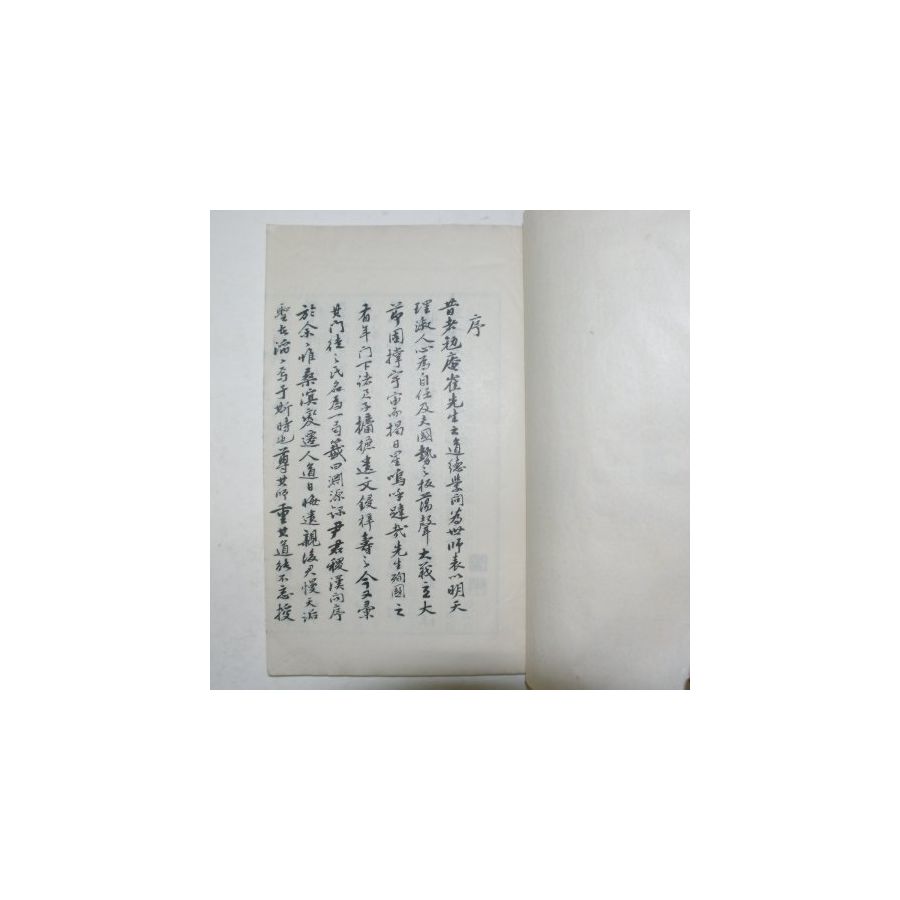 序
昔者勉庵崔先生之道德學問為世師表以明天
理淑人心為自任及夫國勢之板蕩聲大義立大
節圈撑宇宙而揭日星嗚呼韙哉先生殉國之
有年門下諸君子摭遺文鋟梓壽之今又彙
其門徒之氏名為一籍曰淵源錄尹君稷漢問序
於余余惟桑溟變遷人道日晦遺親後君慢天
聖者滔滔焉于斯時也尊其師重其道能不忘授